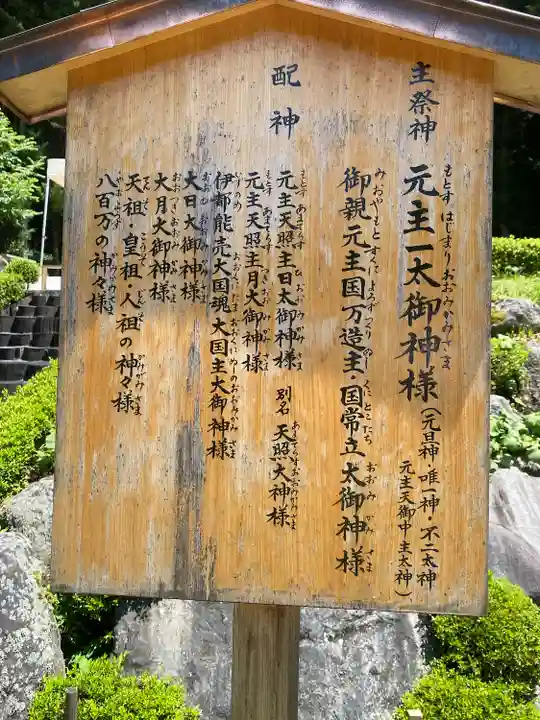 主祭神
元主一太御神様
もとす はじまりおおみかみさま
（元旦神・唯一神・不二太神
元主天御中主太神）
御親元主国万造主・国常立太御神様
配神
元主天照主日太御神様
別名 天照大神様
元主天照主月大御神様
伊都能売大国魂大国主大御神様
大日大御神様
大月大御神様
天祖・皇祖・人祖の神々様
八百万の神々様